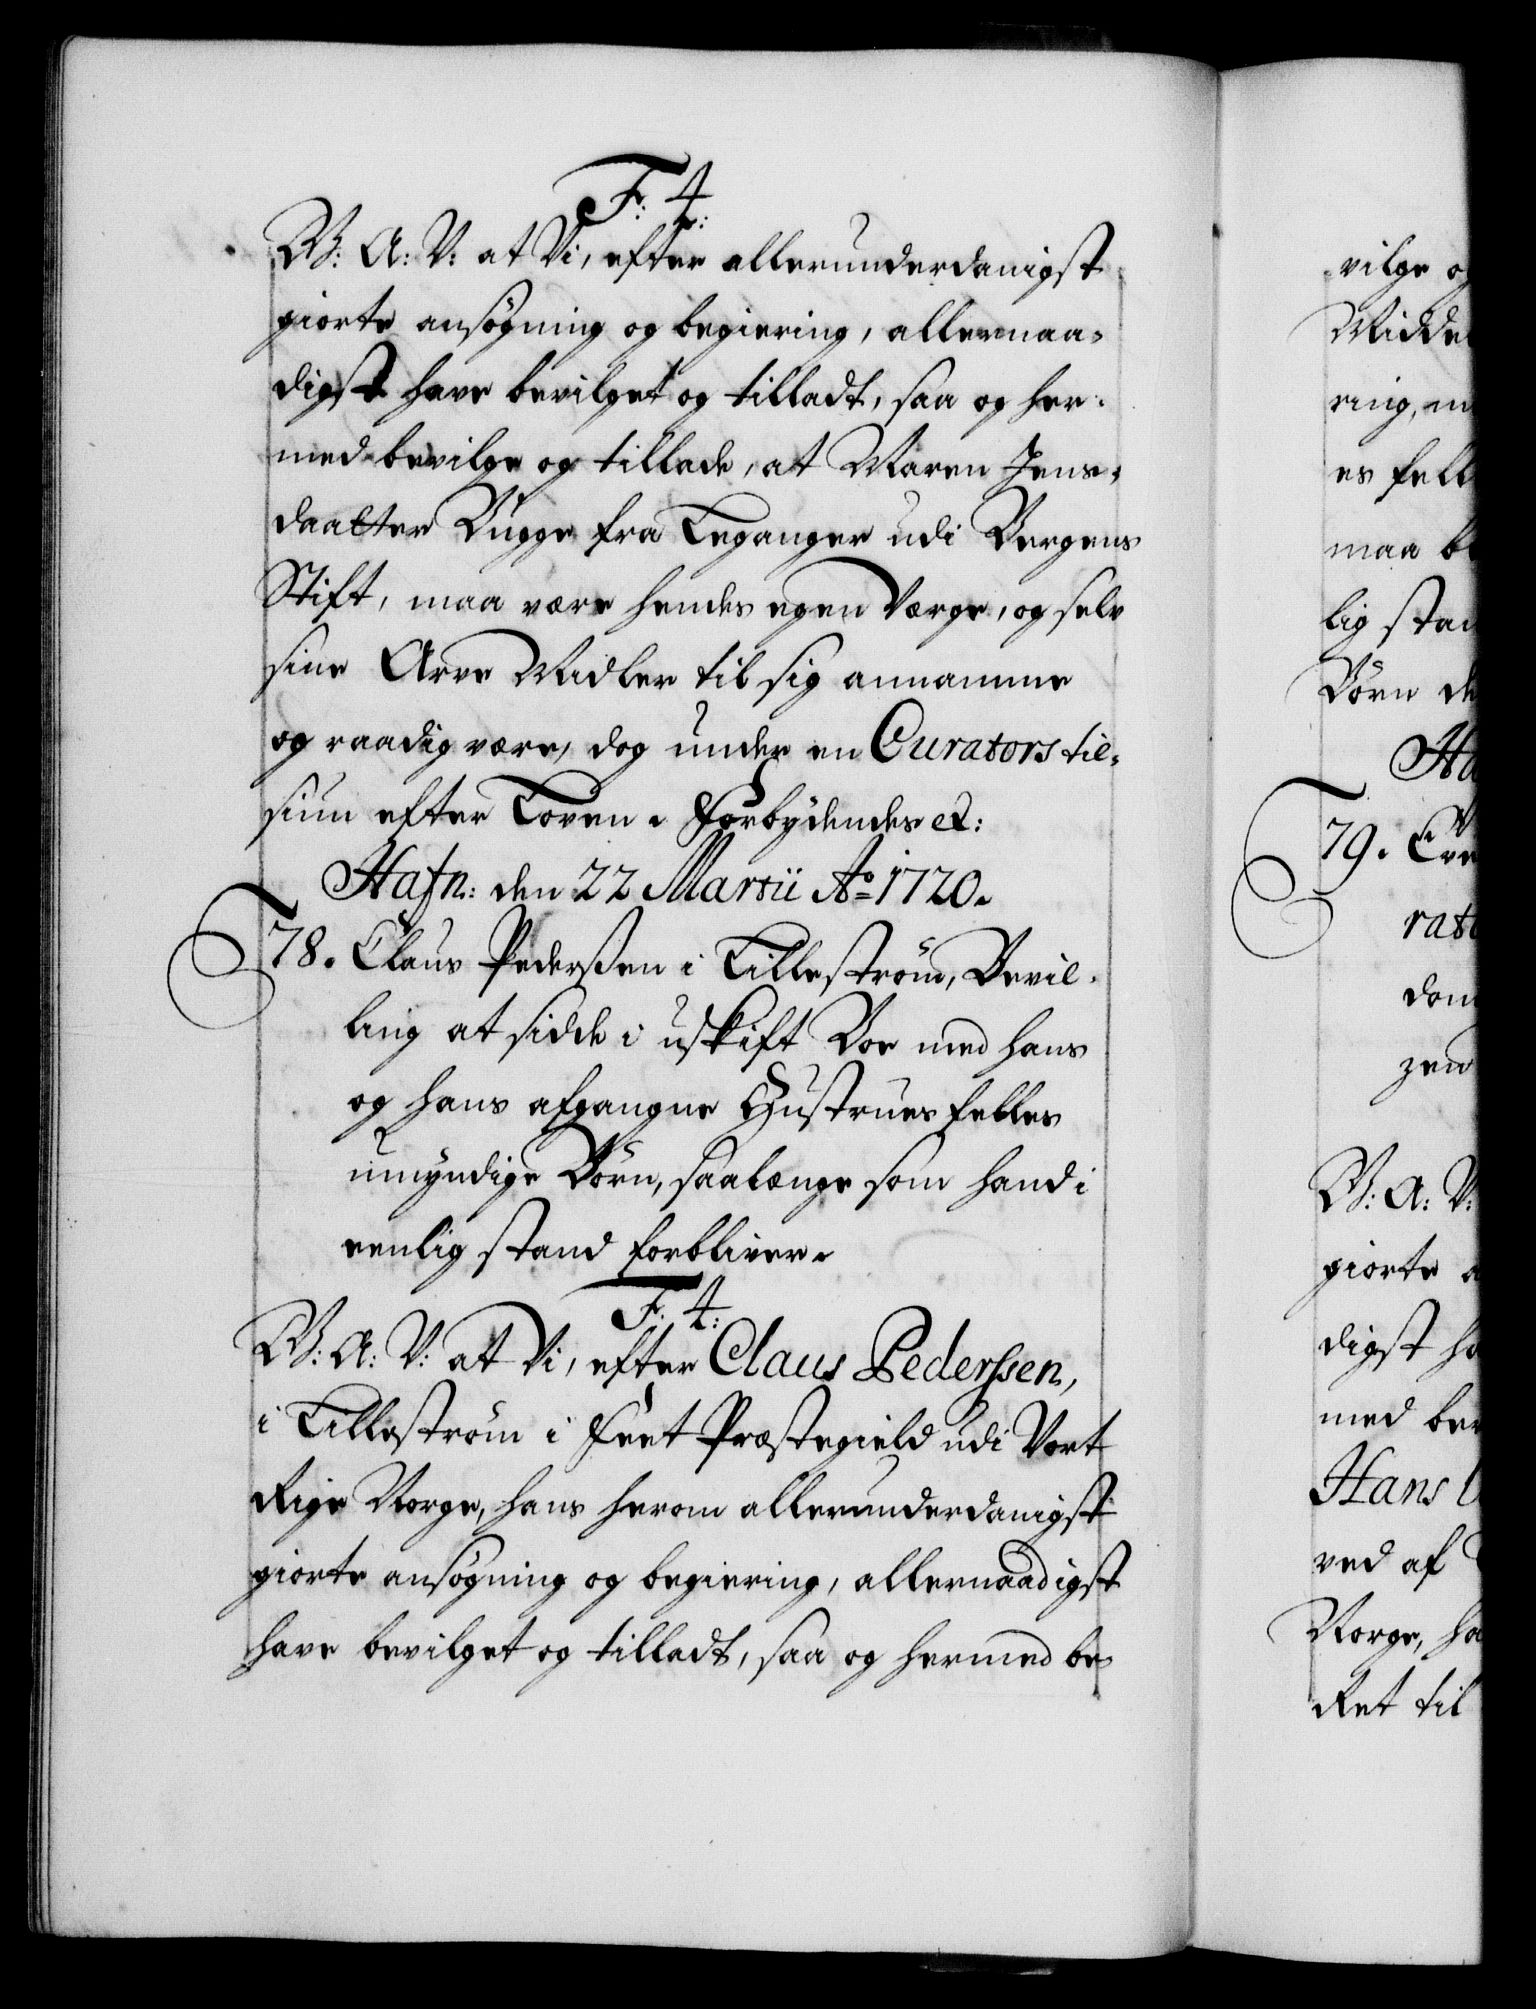 F: 4:
B: A: V: at Vi, efter allerunderdanigst
giorte ansøgning og begiering, allernaa-
digst have bevilget og tilladt, saa og her-
med bevilge og tillade, at Maren Jens-
daatter Bugge fra Leganger udi Bergens
Stift, maa være hendes egen Værge, og selv
sine Arve Midler til sig annamme
og raadig være, dog under en Curators til-
siun efter Loven. Forbydendes ec:
Hafn: den 22 Martii Ao 1720.
78. Claus Pederssen i Lillestrøm, Bevil-
ling at sidde i uskift Boe med hans
og hans afgangne Hustrues felles
umyndige Børn, saalænge som hand i
eenlig stand forbliver.
F: 4:
B: A: V: at Vi, efter Claus Pederssen,
i Lillestrøm i Feet Præstegield udi Vort
Rige Norge, hans herom allerunderdanigst
giorte ansøgning og begiering, allernaadigst
have bevilget og tilladt, saa og hermed be-
vilge o
Midde
ring, m
es fell
maa b
lig stan
Børn de
Ha
79.
rato
dom
zen
B: A: V:
giorte a
digst ha
med bev
Hans
ved af
Norge, ha
Ret til